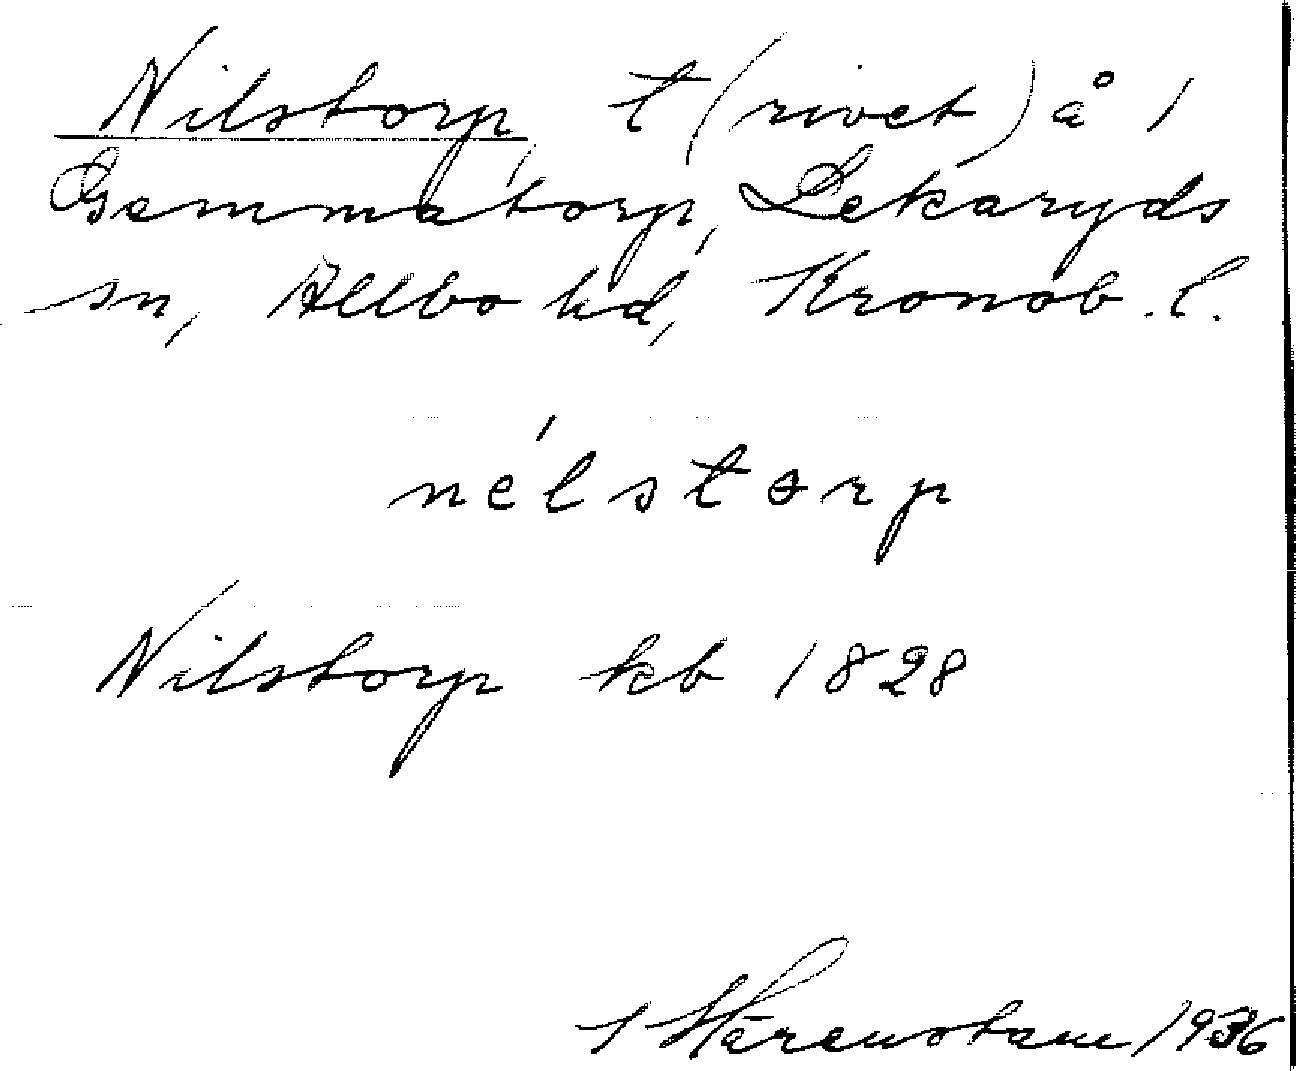 Nilstorp, t (rivet) å 1
Gemmatorp, Lekaryds
sn, Allbo hd, Kronob. l.
nélstɵrp
Nilstorp kb 1828
1936